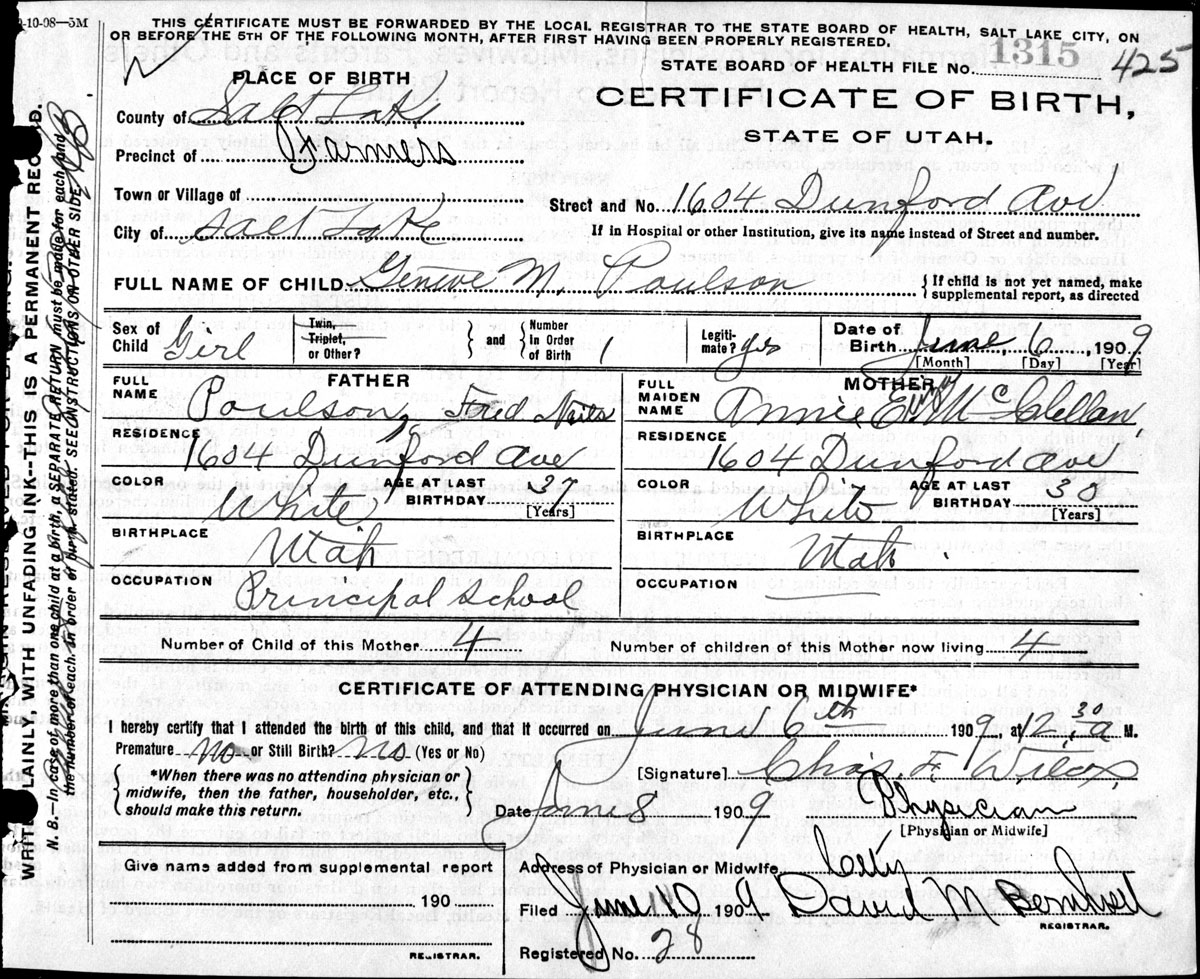 9-10-08—5M
THIS CERTIFICATE MUST BE FORWARDED BY THE LOCAL REGISTRAR TO THE STATE BOARD OF HEALTH, SALT LAKE CITY, ON
OR BEFORE THE 5TH OF THE FOLLOWING MONTH, AFTER FIRST HAVING BEEN PROPERLY REGISTERED.
STATE BOARD OF HEALTH FILE No. 1315 425
PLACE OF BIRTH
CERTIFICATE OF BIRTH,
STATE OF UTAH.
County of Salt Lake
Precinct of Farmers
Town or Village of
Street and No. 1604 Dunford Ave
City of Salt Lake
If in Hospital or other Institution, give its name instead of Street and number.
FULL NAME OF CHILD Geneve M. Poulson
{If child is not yet named, make
supplemental report, as directed
Sex of Child Girl
Twin, Triplet, or Other? } and { Number In Order of Birth 1
Legiti-mate? yes
Date of Birth June, 6, 1909
[Month] [Day] [Year]
FATHER
FULL NAME Poulson, Fred
MOTHER
FULL MAIDEN NAME Annie McClellan
RESIDENCE 1604 Dunford Ave
RESIDENCE 1604 Dunford Ave
COLOR White
AGE AT LAST BIRTHDAY 37 [Years]
COLOR White
AGE AT LAST BIRTHDAY 38 [Years]
BIRTHPLACE Utah
BIRTHPLACE Utah
OCCUPATION Principal School
OCCUPATION
Number of Child of this Mother 4
Number of children of this Mother now living 4
CERTIFICATE OF ATTENDING PHYSICIAN OR MIDWIFE*
I hereby certify that I attended the birth of this child, and that it occurred on June 6th 1909, at 12,30 a M.
Premature No or Still Birth? No (Yes or No)
{ *When there was no attending physician or
midwife, then the father, householder, etc.,
should make this return. }
[Signature] Chas. F. Wilcox
Date June 8 1909 Physician
[Physician or Midwife]
Give name added from supplemental report
190
REGISTRAR.
Address of Physician or Midwife City
Filed June 10 1909 David M
REGISTRAR.
Registered No. 28
WRITE PLAINLY WITH UNFADING INK---THIS IS A PERMANENT RECORD.
N. B.—In case of more than one child at a birth, a SEPARATE RETURN must be made for each, and
the number of each, in order of birth, stated. SEE INSTRUCTIONS ON OTHER SIDE.